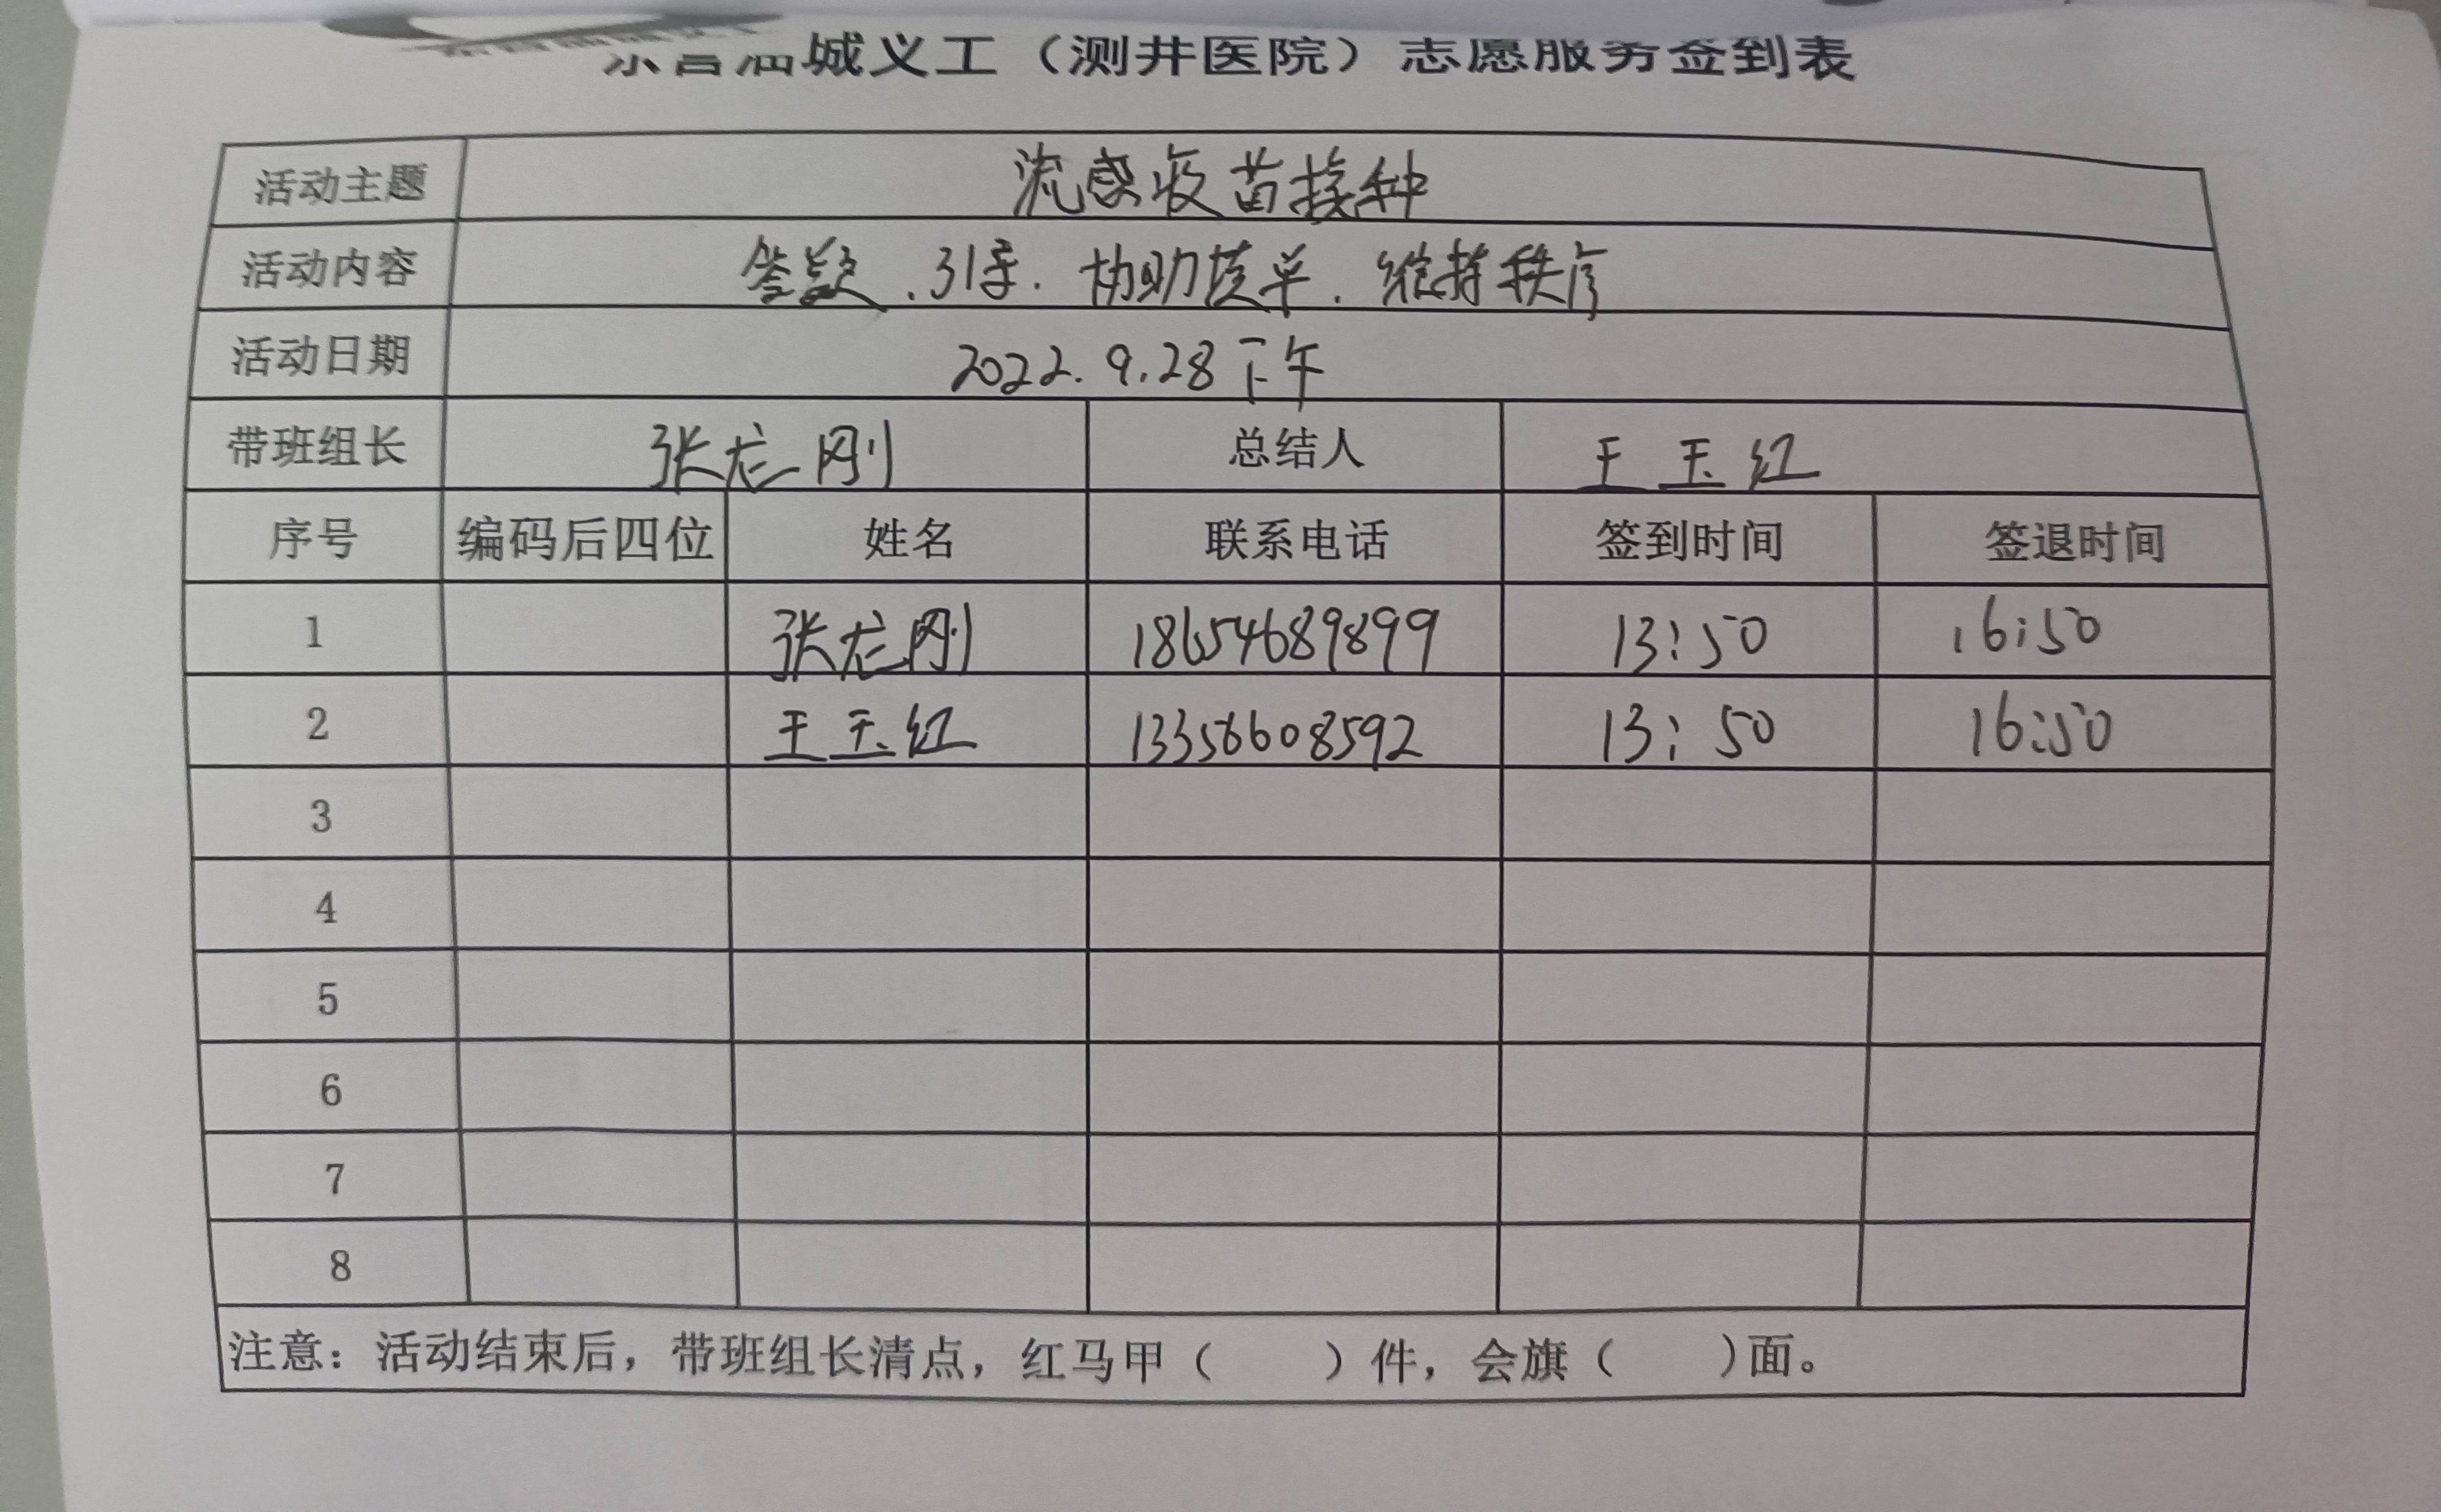 城义工（测井医院）志愿服务签到表
活动主题 流感疫苗接种
活动内容 答疑、引导、协助填单、维持秩序
活动日期 2022.9.28下午
带班组长 张龙刚 总结人 王玉红
序号 编码后四位 姓名 联系电话 签到时间 签退时间
1 张龙刚 18654689899 13:50 16:50
2 王玉红 13356608592 13:50 16:50
3
4
5
6
7
8
注意：活动结束后，带班组长清点，红马甲（ ）件，会旗（ ）面。